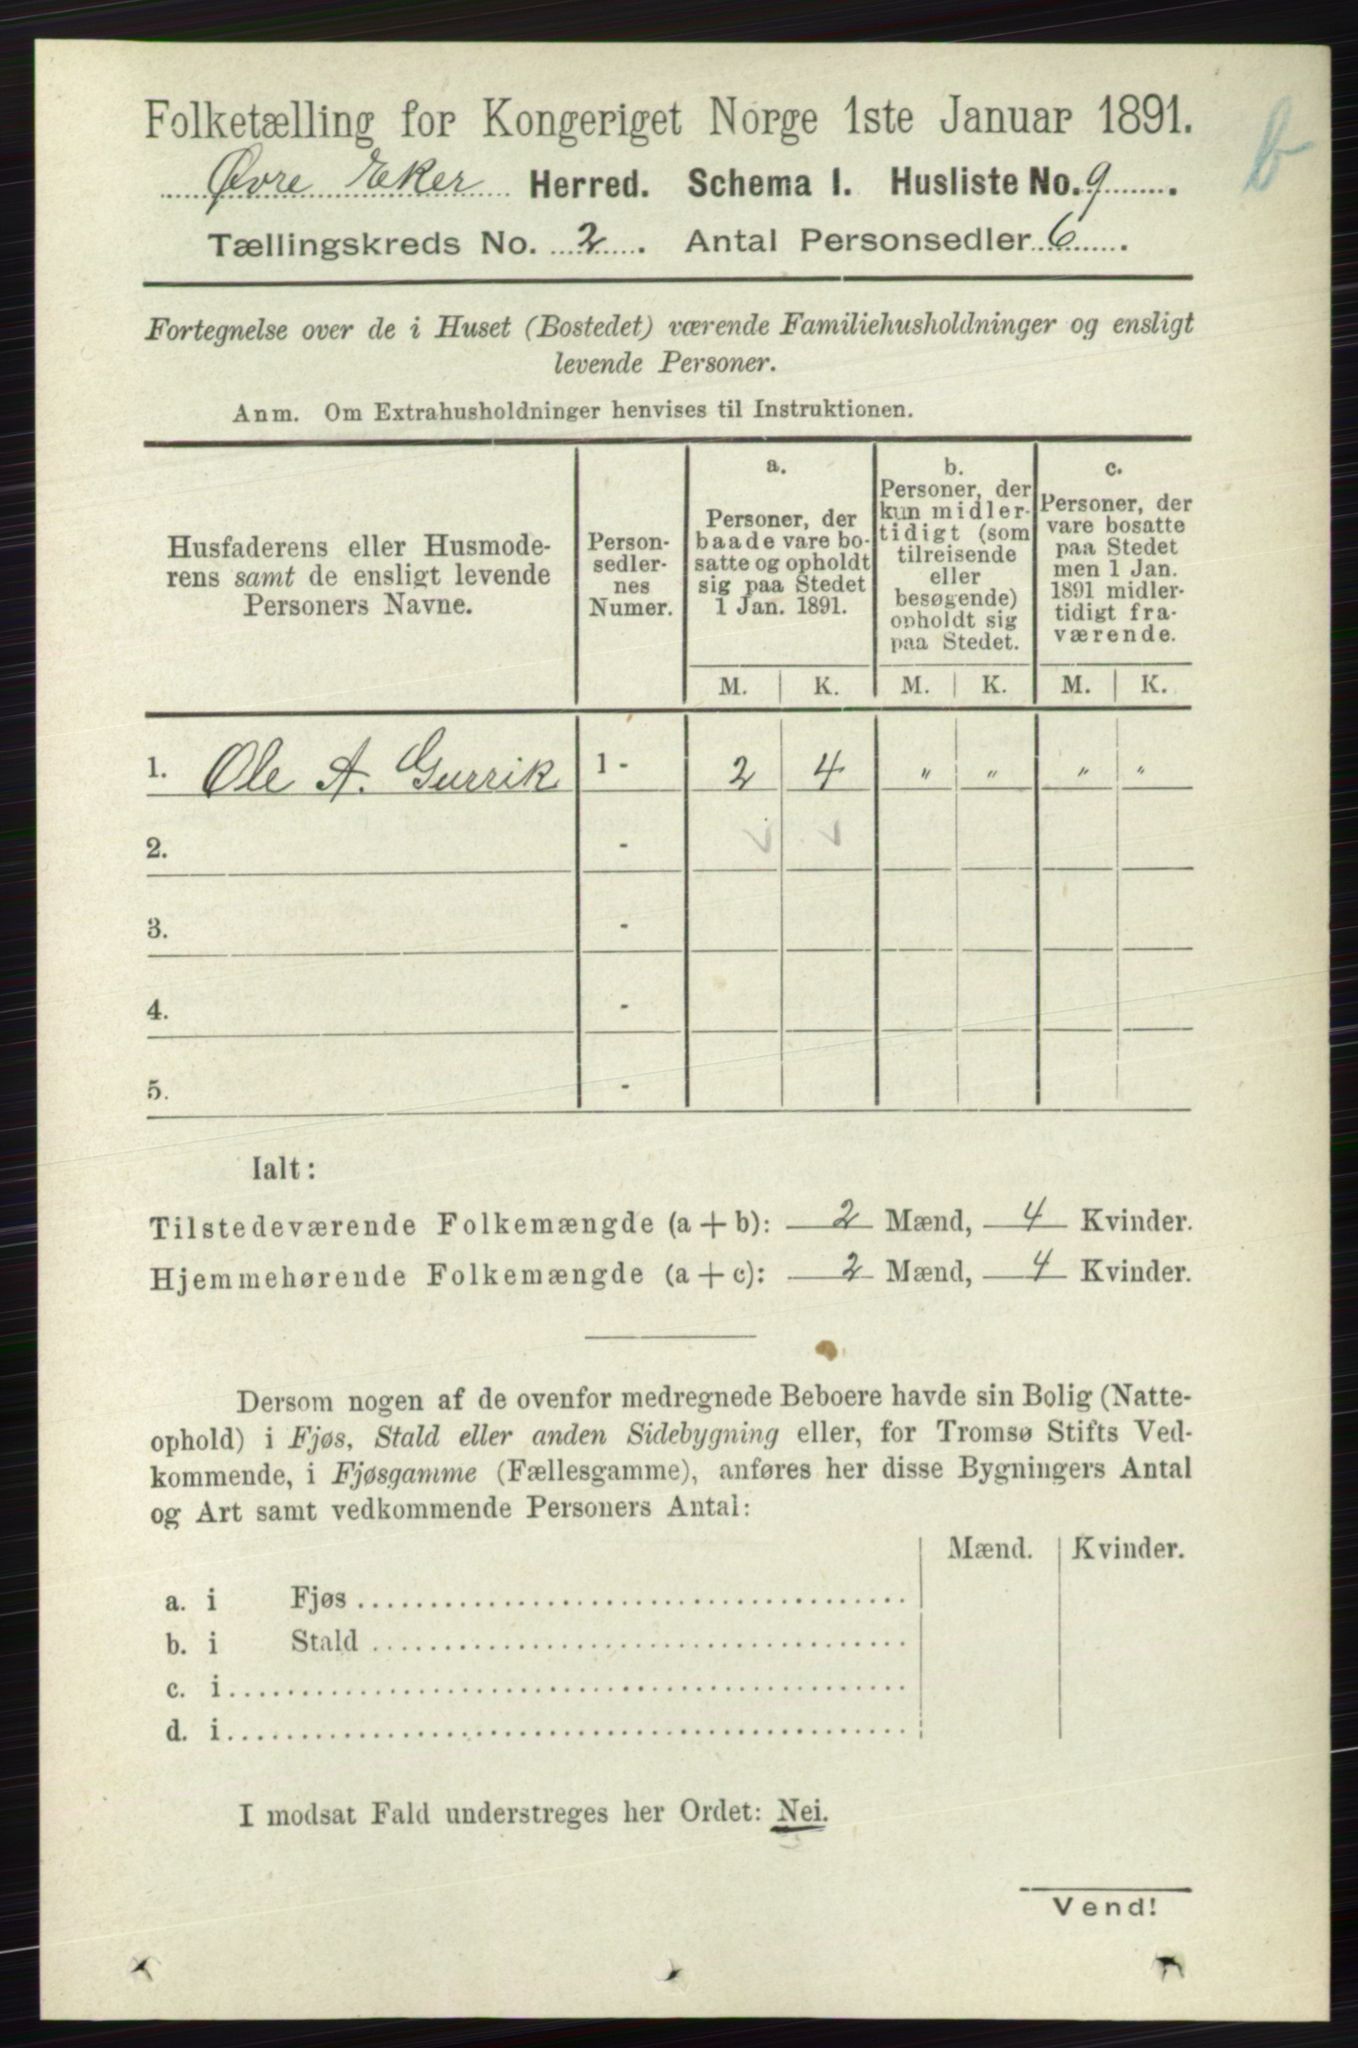 Folketælling for Kongeriget Norge 1ste Januar 1891.
b
Øvre Eker Herred. Schema I. Husliste No. 9.
Tællingskreds No. 2. Antal Personsedler 6.
Fortegnelse over de i Huset (Bostedet) værende Familiehusholdninger og ensligt
levende Personer.
Anm. Om Extrahusholdninger henvises til Instruktionen.
Husfaderens eller Husmode-
rens samt de ensligt levende
Personers Navne.
Person-
sedler-
nes
Numer.
a.
Personer, der
baade vare bo-
satte og opholdt
sig paa Stedet
1 Jan. 1891.
b.
Personer, der
kun midler-
tidigt (som
tilreisende
eller
besøgende)
opholdt sig
paa Stedet.
c.
Personer, der
vare bosatte
paa Stedet
men 1 Jan.
1891 midler-
tidigt fra-
værende.
M. K. M. K. M. K.
1. Ole A. Gurrik 1 - 2 4 " " " "
2. -
3. -
4. -
5. -
Ialt:
Tilstedeværende Folkemængde (a + b): 2 Mænd, 4 Kvinder.
Hjemmehørende Folkemængde (a + c): 2 Mænd, 4 Kvinder.
Dersom nogen af de ovenfor medregnede Beboere havde sin Bolig (Natte-
ophold) i Fjøs, Stald eller anden Sidebygning eller, for Tromsø Stifts Ved-
kommende, i Fjøsgamme (Fællesgamme), anføres her disse Bygningers Antal
og Art samt vedkommende Personers Antal:
Mænd. Kvinder.
a. i Fjøs
b. i Stald
c. i
d. i
I modsat Fald understreges her Ordet: Nei.
Vend!